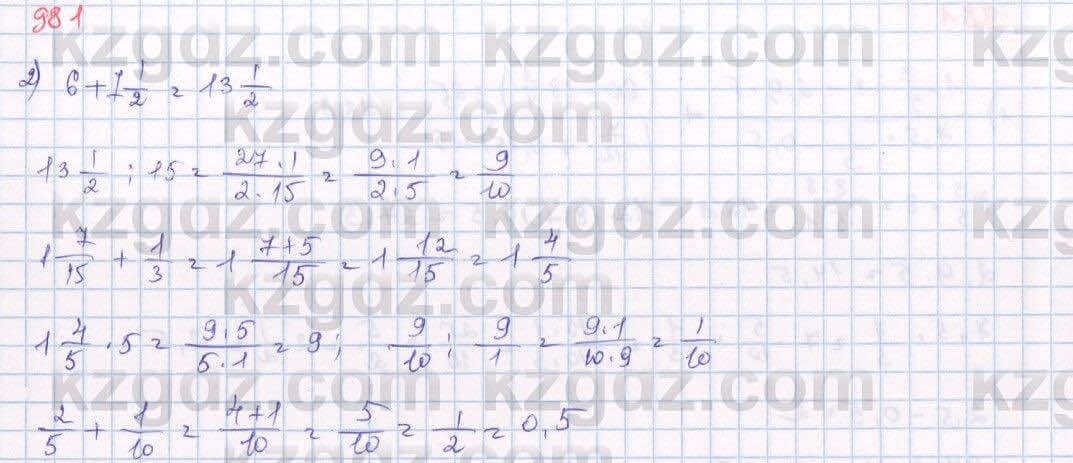 981
2) 6 + 7 1/2 = 13 1/2
13 1/2 : 15 = 27·1/2·15 = 9·1/2·5 = 9/10
1 7/15 + 1/3 = 1 7+5/15 = 1 12/15 = 1 4/5
1 4/5 · 5 = 9·5/5·1 = 9; 9/10 : 9/1 = 9·1/10·9 = 1/10
2/5 + 1/10 = 4+1/10 = 5/10 = 1/2 = 0,5
kzgdz.com kzgdz.com kz
kzgdz.com
kzgdz.com kzgdz.com kzg
kzgdz.com
kzgdz.com kzgdz.com kzg
kzgdz.com